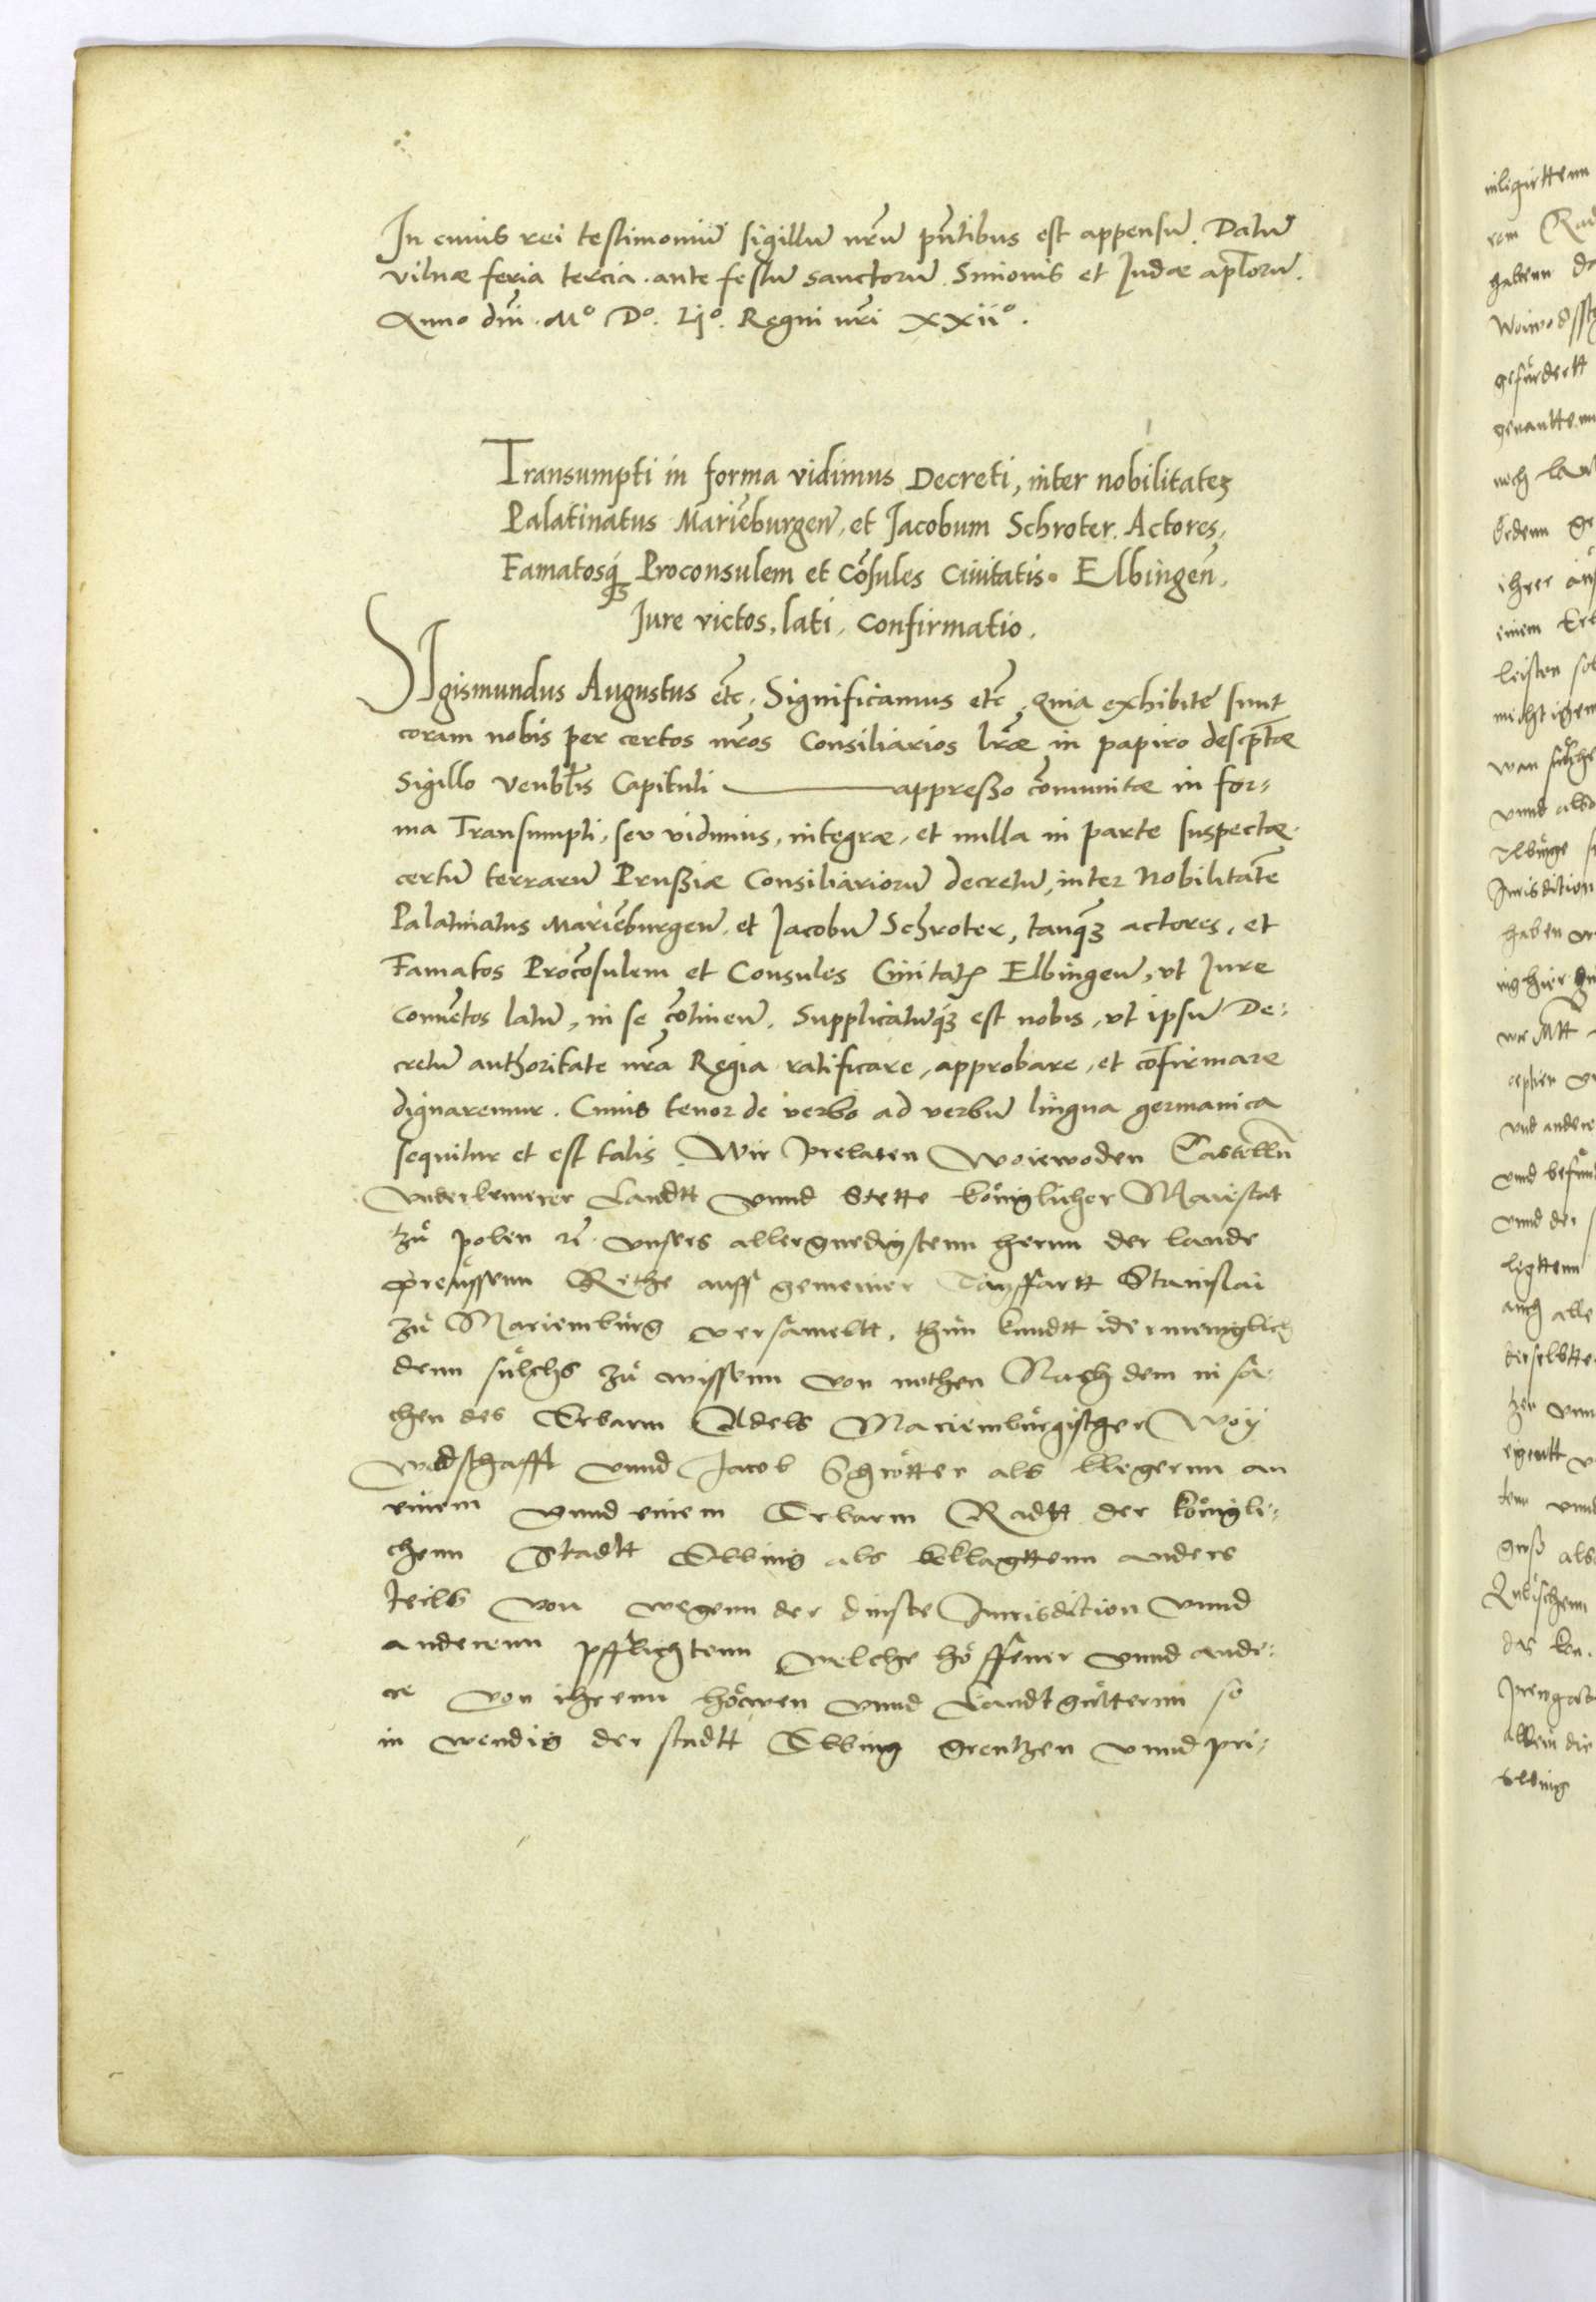 In cuius rei testimoniū sigillū nr̄ū pn̄tibus est appensū. Datū
Vilnæ feria tercia ante festū sanctorū Simonis et Judæ apl̄orū.
Anno dn̄i. Mº Dº. Lijº. Regni nr̄i xxiiº.
Transumpti in forma vidimus Decreti, inter nobilitatez
Palatinatus Mariēburgen̄, et Jacobum Schroter. Actores,
Famatosq3 Proconsulem et Cōsules Ciuitatis Elbingen̄,
Jure victos, lati, Confirmatio.
SIgismundus Augustus etc̄. Significamus etc̄. Quia exhibite sunt
coram nobis per certos nr̄os Consiliarios lr̄æ in papiro descptæ
Sigillo Venbl̄is Capituli ——— appresso cōmunitæ in for-
ma Transumpti, seu vidimus, integræ, et nulla in parte suspectæ.
certū terrarū Prussiæ Consiliariorū decretū, inter Nobilitatē
Palatinatus Mariēburgen̄, et Jacobū Schroter, tanq3 actores, et
Famatos Procōsulem et Consules Ciuitatis Elbingen̄, ut Jure
Conuētos latū, in se cōtinen̄. Supplicatūq3 est nobis, ut ipsū De-
cretū authoritate nr̄a Regia ratificare, approbare, et cōfirmare
dignaremur. Cuius tenor de verbo ad verbū lingua germanica
sequitur et est talis. Wir Prelaten Woiewoden Castelln̄
Vnderkemerer Landtt vnnd Stette königlicher Maiestat
zů polen vnsers allergnedigstenn hernn der lande
preůssenn Rethe auff gemeiner Tagffartt Stanislai
zů Mariembůrg versameltt, thůn kundtt idermeniglich
denn sůlchs zů wissenn von nothen Nach dem in sa-
chen des Erbarn Adels Mariembůrgischer Woy
wadschafft vnnd Jacob Schrötter als klegernn an
einem vnnd einem Erbarn Radtt der königli-
chenn Stadtt Elbing als beklagttenn anders
teils von wegenn der dinste Jurisdiction vnnd
anderenn pfflichtenn welche höffener vnnd ande-
re von ihrenn höwen vnnd Landtgůtternn so
in wendig der stadtt Elbing grentzen vnnd pri-